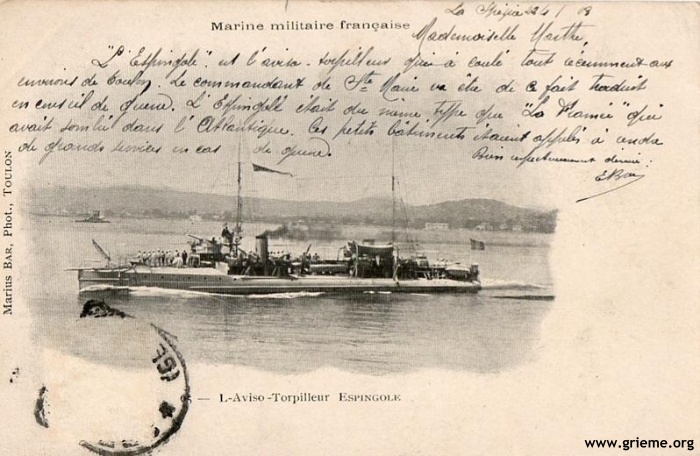 Marine militaire française
La Spezia 24/ 03
Mademoiselle Marthe
"L'Espingole" est l'aviso-torpilleur qui a coulé tout récemment aux
environs de Toulon. Le commandant de Ste Marie va être de ce fait traduit
en conseil de guerre. L'Espingole était du même type que "La Framée" qui
avait sombré dans l'Atlantique. Ces petits bâtiments étaient appelés à rendre
de grands services en cas de guerre.
Bien respectueusement
Marius BAR, Phot., TOULON
— L-Aviso-Torpilleur ESPINGOLE
www.grieme.org